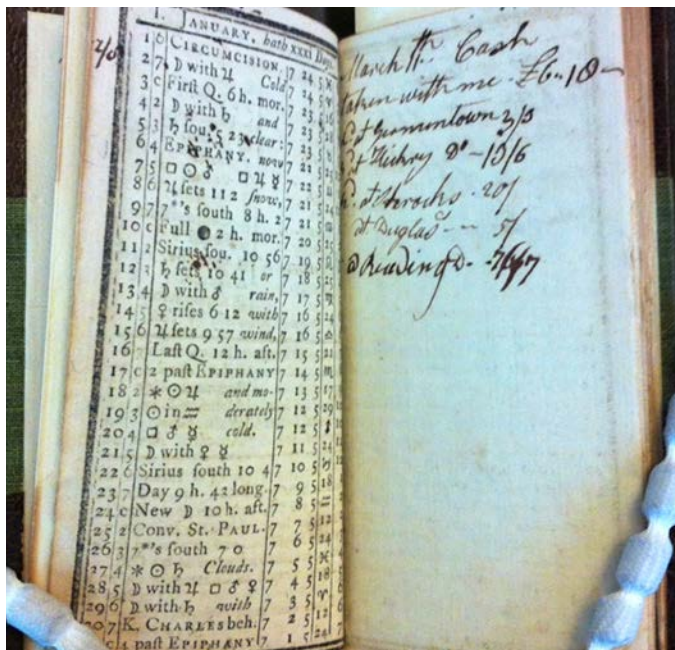 I. JANUARY, hath XXXI Days.
1 6 CIRCUMCISION. 7 24 5
2 7 ☽ with ♃ Cold 7 24 5
3 C First Q. 6 h. mor. 7 23 5
4 2 ☽ with ♄ and 7 23 5
5 3 ♄ sou. 5 23 clear: 7 23 5
6 4 EPIPHANY. now 7 22 5
7 5 □ ☉ ♂ □ ♃ ☿ 7 22 5
8 6 ♃ sets 1 12 snow, 7 21 5
9 7 7*'s south 8 h. 2 7 21 5
10 C Full ● 2 h. mor. 7 20 5
11 2 Sirius sou. 10 56 7 19 5
12 3 ♄ sets 10 41 or 7 18 5
13 4 ☽ with ♂ rain, 7 17 5
14 5 ♀ rises 6 12 with 7 16 5 24
15 6 ♃ sets 9 57 wind, 7 16 5 ♎
16 7 Last Q. 12 h. aft. 7 15 5 21
17 C 2 past EPIPHANY 7 14 5 ♏
18 2 ⚹ ☉ ♃ and mo- 7 13 5 17
19 3 ☉ in ♒ derately 7 12 5 29
20 4 □ ♂ ☿ cold. 7 12 5 ♐
21 5 ☽ with ♀ ☿ 7 11 5 24
22 6 Sirius south 10 4 7 10 5 ♑
23 7 Day 9 h. 42 long. 7 9 5 18
24 C New ☽ 10 h. aft. 7 8 5 ♒
25 2 Conv. St. PAUL. 7 7 5 12
26 3 7*'s south 7 0 7 6 5 24
27 4 ⚹ ☉ ♄ Clouds. 7 5 5 ♓
28 5 ☽ with ♃ □ ♂ ♀ 7 4 5 18
29 6 ☽ with ♄ with 7 3 5 ♈
30 7 K. CHARLES beh. 7 2 5 12
C 3 past EPIPHANY 7 1 5 24
March 11th. Cash
taken with me - £6-18-
at Germentown 3/3
at Hickry Do - 13/6
at Shrocks - 20/
at Duglas - - 5/